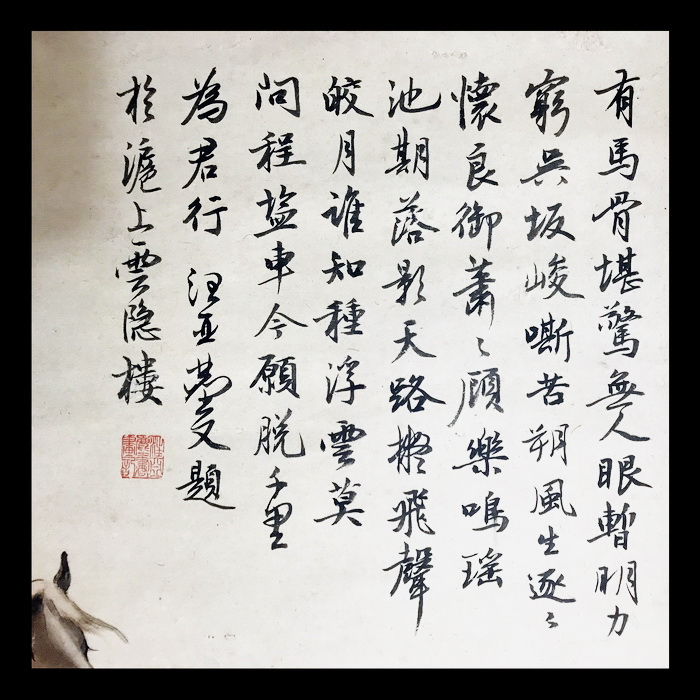 有馬骨堪驚無人眼暫明力
窮吳坂峻嘶苦朔風生逐〻
懷良御蕭〻顧樂鳴瑤
池期落影天路擬飛聲
皎月誰知種浮雲莫
問程塩車今願脫千里
為君行 汪亞塵又題
於滬上雲隐樓